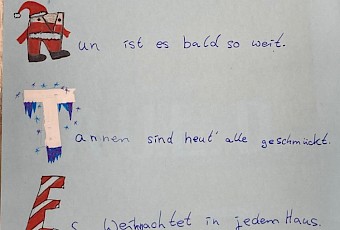 Nun ist es bald so weit.
Tannen sind heut' alle geschmückt.
Es Weihnachtet in jedem Haus.